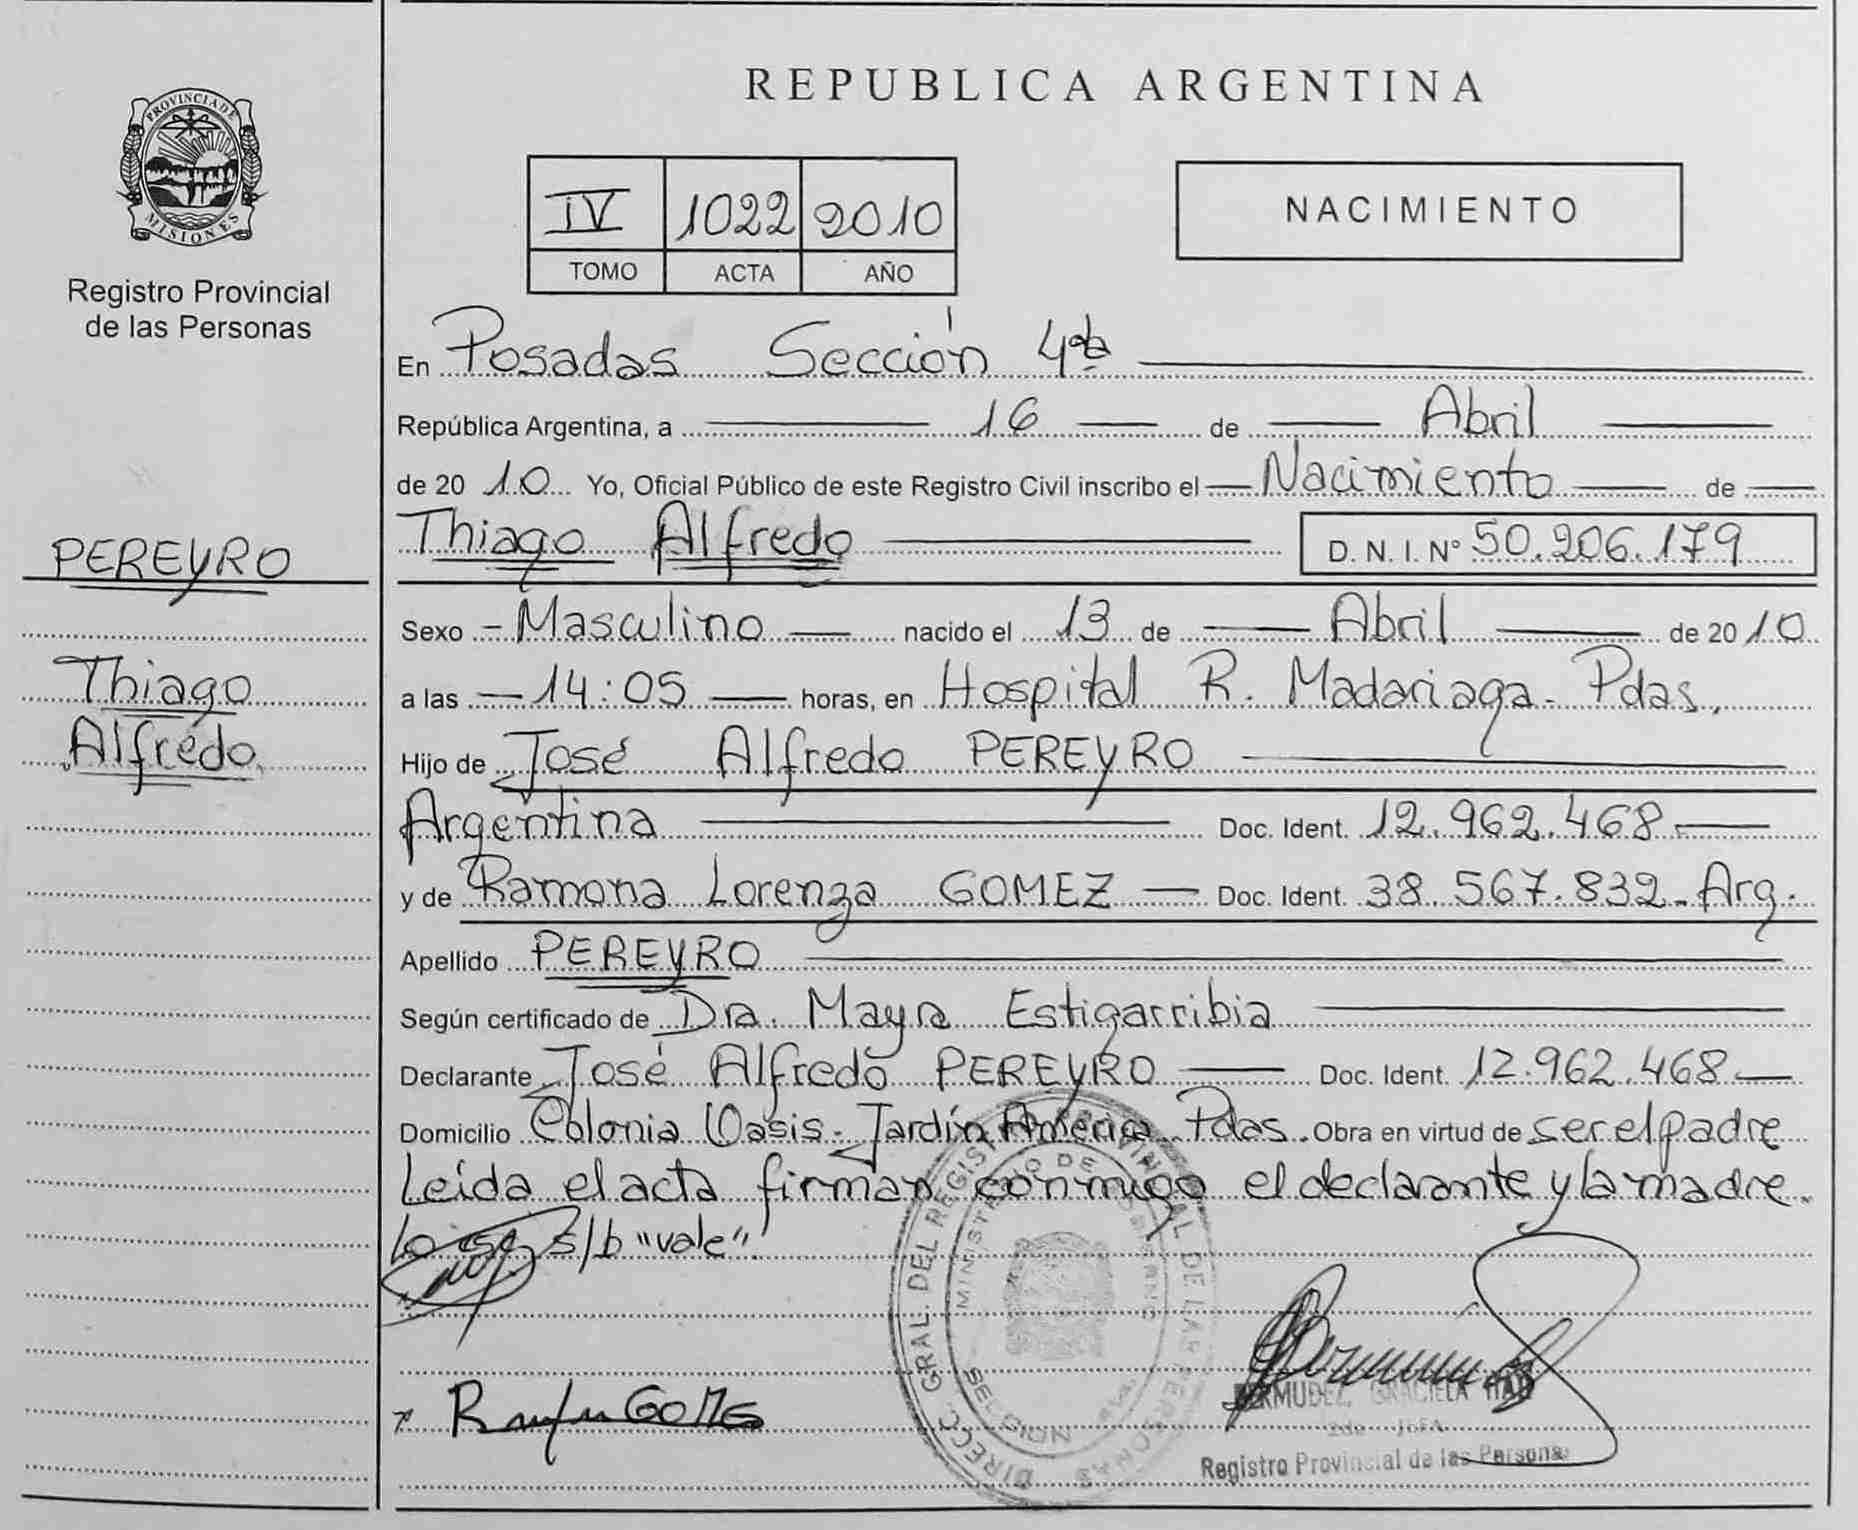 PROVINCIA DE
MISIONES
Registro Provincial
de las Personas
PEREYRO
Thiago
Alfredo
REPUBLICA ARGENTINA
IV 1022 2010
TOMO ACTA AÑO
NACIMIENTO
En Posadas Sección 4ta
República Argentina, a 16 de Abril
de 2010 Yo, Oficial Público de este Registro Civil inscribo el Nacimiento de
Thiago Alfredo D. N. I. Nº 50.206.179
Sexo - Masculino nacido el 13 de Abril de 2010
a las 14:05 horas, en Hospital R. Madariaga - Pdas.
Hijo de José Alfredo PEREYRO
Argentina Doc. Ident. 12.962.468
y de Ramona Lorenza GOMEZ Doc. Ident. 38.567.832 - Arg.
Apellido PEREYRO
Según certificado de Dra. Mayra Estigarribia
Declarante José Alfredo PEREYRO Doc. Ident. 12.962.468
Domicilio Colonia Oasis - Jardín América Pdas. Obra en virtud de ser el padre
Leída el acta firman conmigo el declarante y la madre.
s/b "vale".
DIRECC. GRAL. DEL REGISTRO PROVINCIAL DE LAS PERSONAS
MINISTERIO DE GOBIERNO
BERMUDEZ, GRACIELA
2do JEFA
Registro Provincial de las Personas